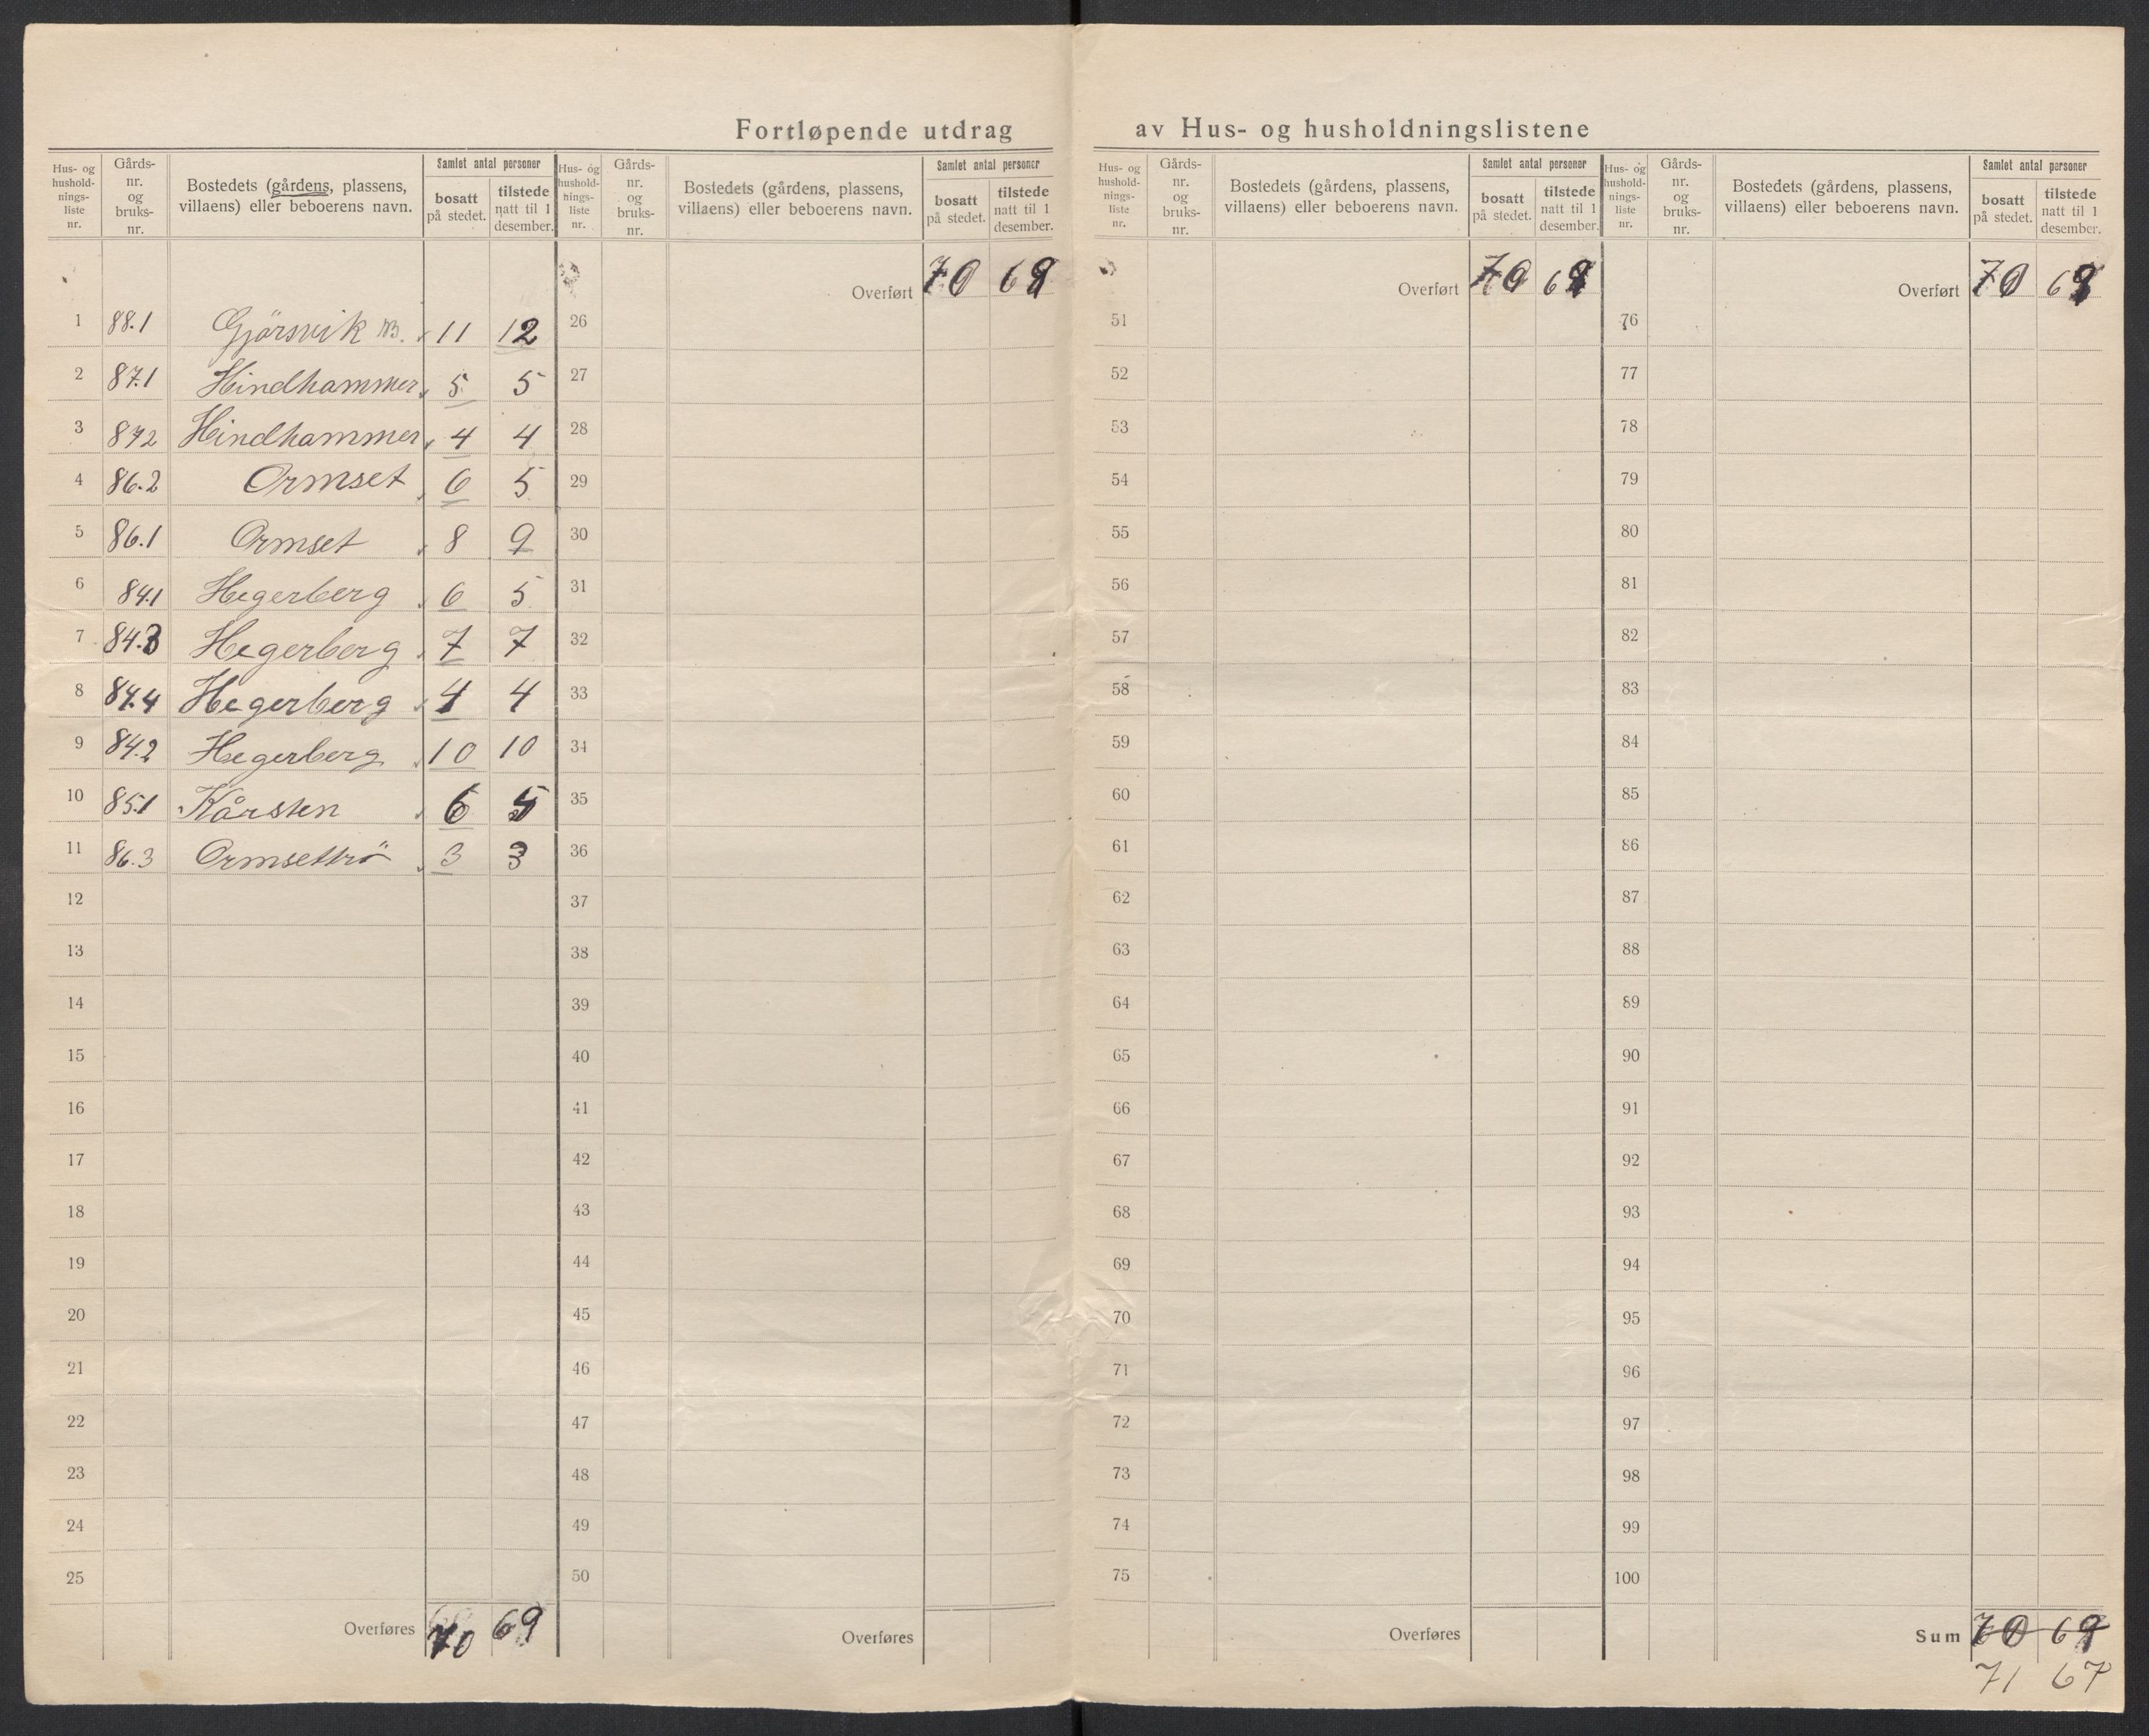 Fortløpende utdrag av Hus- og husholdningslistene
Hus- og hushold-nings-liste nr. Gårds-nr. og bruks-nr. Bostedets (gårdens, plassens, villaens) eller beboerens navn. Samlet antal personer bosatt på stedet. tilstede natt til 1 desember.
Hus- og hushold-nings-liste nr. Gårds-nr. og bruks-nr. Bostedets (gårdens, plassens, villaens) eller beboerens navn. Samlet antal personer bosatt på stedet. tilstede natt til 1 desember.
Hus- og hushold-nings-liste nr. Gårds-nr. og bruks-nr. Bostedets (gårdens, plassens, villaens) eller beboerens navn. Samlet antal personer bosatt på stedet. tilstede natt til 1 desember.
Hus- og hushold-nings-liste nr. Gårds-nr. og bruks-nr. Bostedets (gårdens, plassens, villaens) eller beboerens navn. Samlet antal personer bosatt på stedet. tilstede natt til 1 desember.
1 88.1 Gjörsvik 11 12
2 87.1 Hindhammer 5 5
3 87.2 Hindhammer 4 4
4 86.2 Ormset 6 5
5 86.1 Ormset 8 9
6 84.1 Hegerberg 6 5
7 84.3 Hegerberg 7 7
8 84.4 Hegerberg 4 4
9 84.2 Hegerberg 10 10
10 85.1 Kårsten 6 5
11 86.3 Ormsettrö 3 3
12
13
14
15
16
17
18
19
20
21
22
23
24
25
Overføres 70 69
Overført 70 69
26
27
28
29
30
31
32
33
34
35
36
37
38
39
40
41
42
43
44
45
46
47
48
49
50
Overføres
Overført 70 69
51
52
53
54
55
56
57
58
59
60
61
62
63
64
65
66
67
68
69
70
71
72
73
74
75
Overføres
Overført 70 69
76
77
78
79
80
81
82
83
84
85
86
87
88
89
90
91
92
93
94
95
96
97
98
99
100
Sum 70 69
71 67